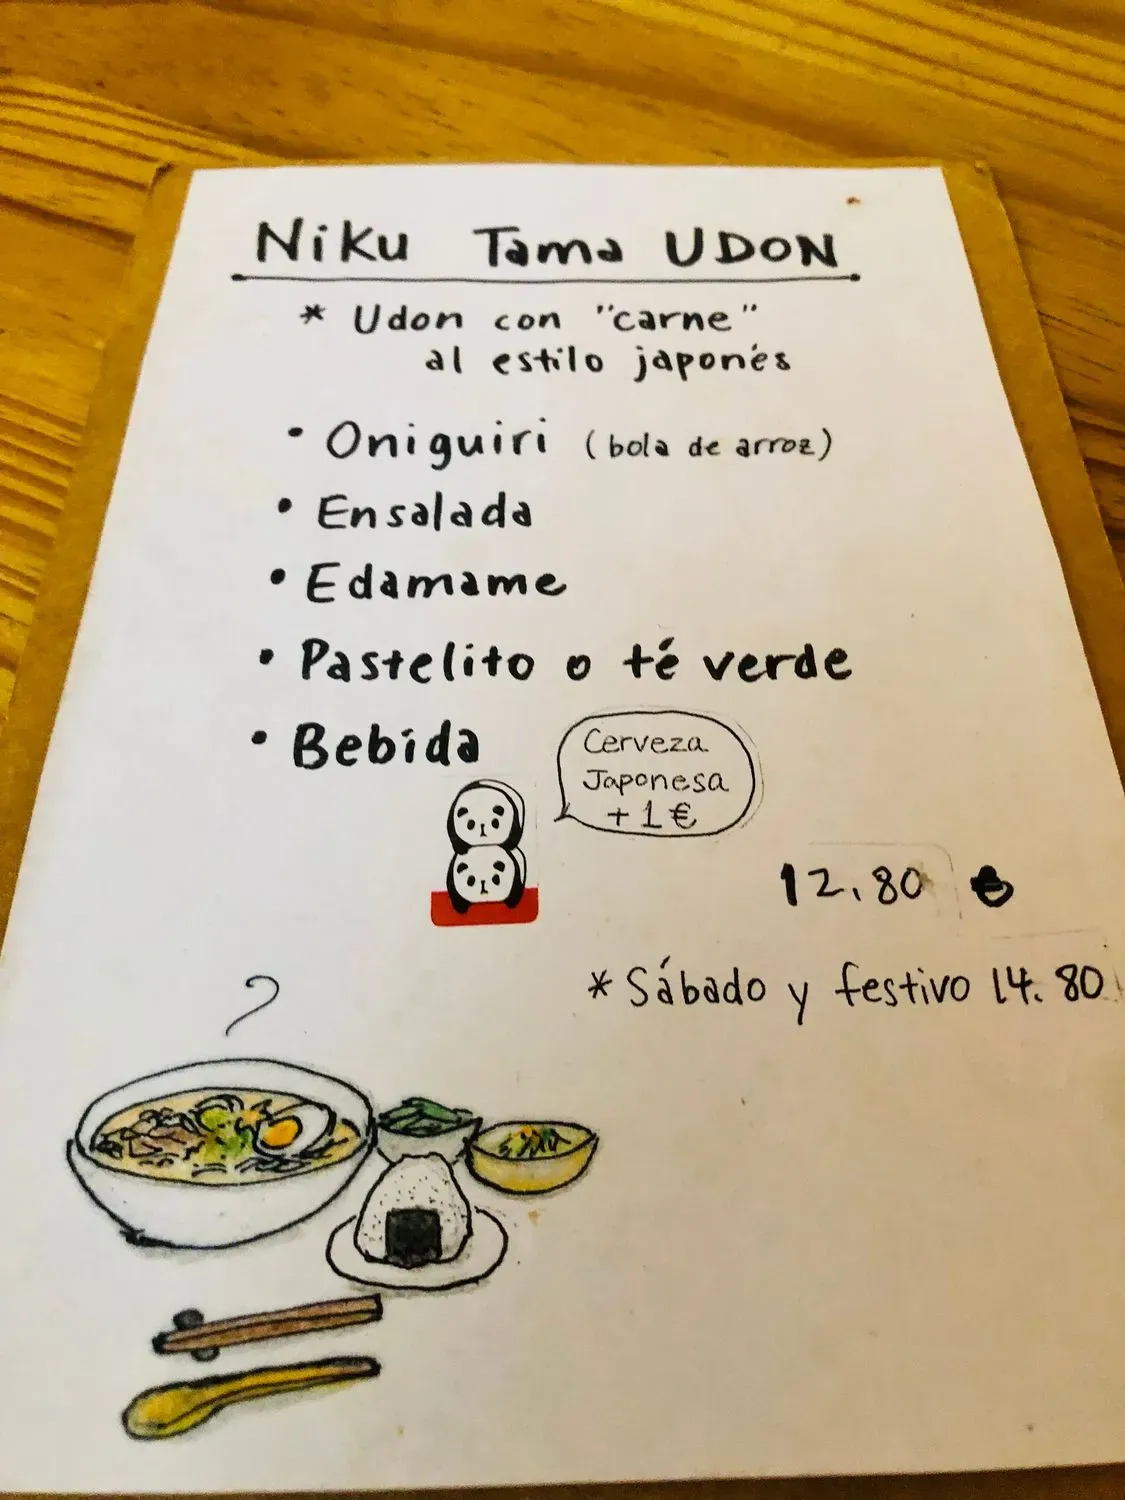 Niku Tama UDON
* Udon con "carne"
al estilo japonés
• Oniguiri (bola de arroz)
• Ensalada
• Edamame
• Pastelito o té verde
• Bebida
Cerveza
Japonesa
+1€
12.80 €
* Sábado y festivo 14.80